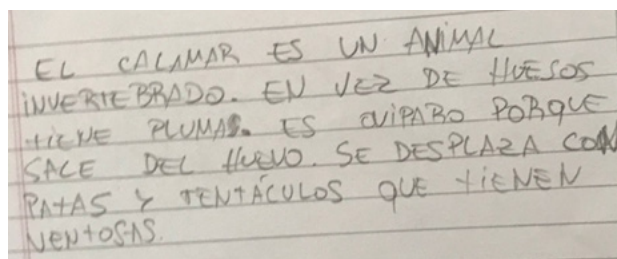 EL CALAMAR ES UN ANIMAL
INVERTEBRADO. EN VEZ DE HUESOS
TIENE PLUMAS. ES OVIPARO PORQUE
SALE DEL HUEVO. SE DESPLAZA CON
PATAS Y TENTÁCULOS QUE TIENEN
VENTOSAS.